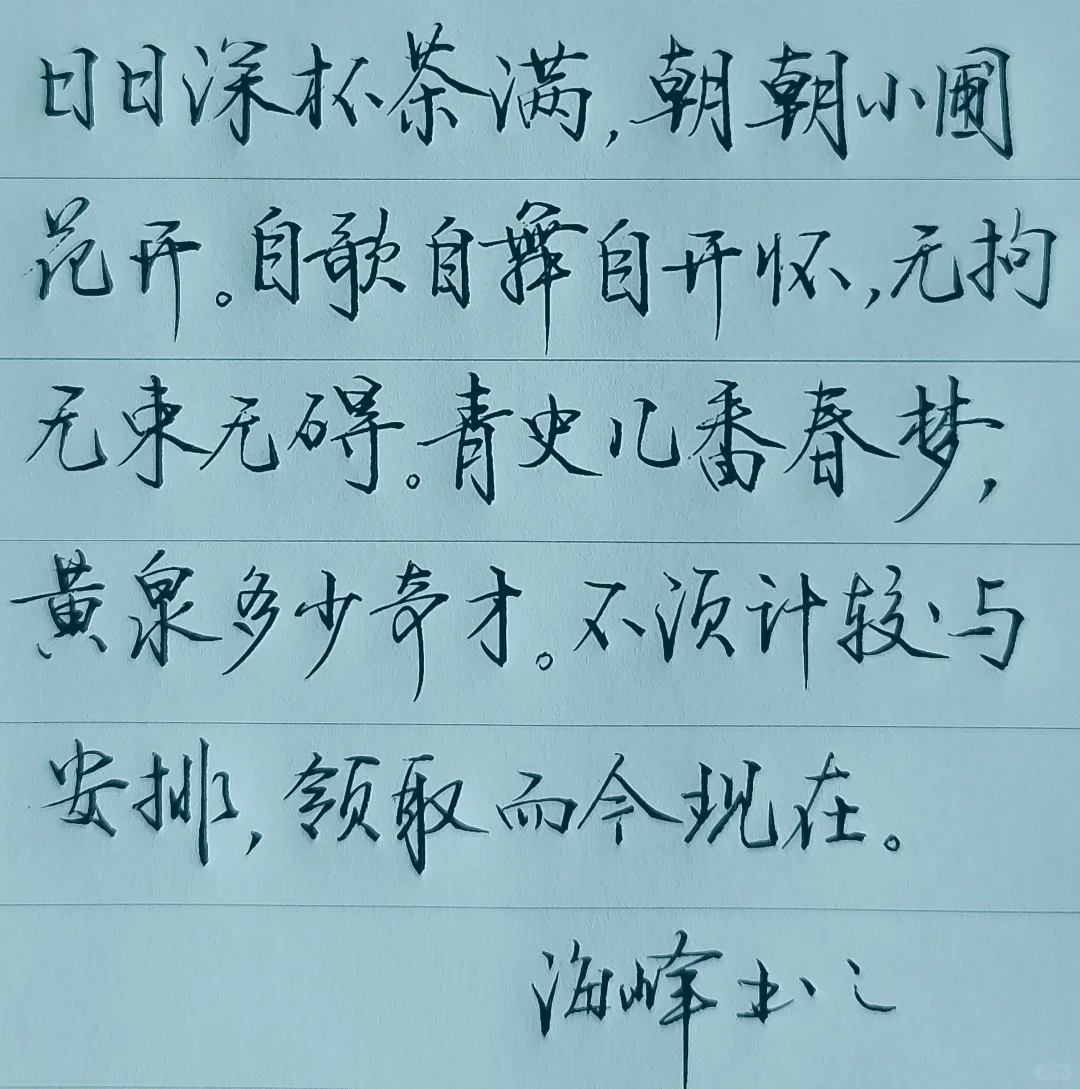 日日深杯茶满，朝朝小圃
花开。自歌自舞自开怀，无拘
无束无碍。青史几番春梦，
黄泉多少奇才。不须计较与
安排，领取而今现在。
海峰书之